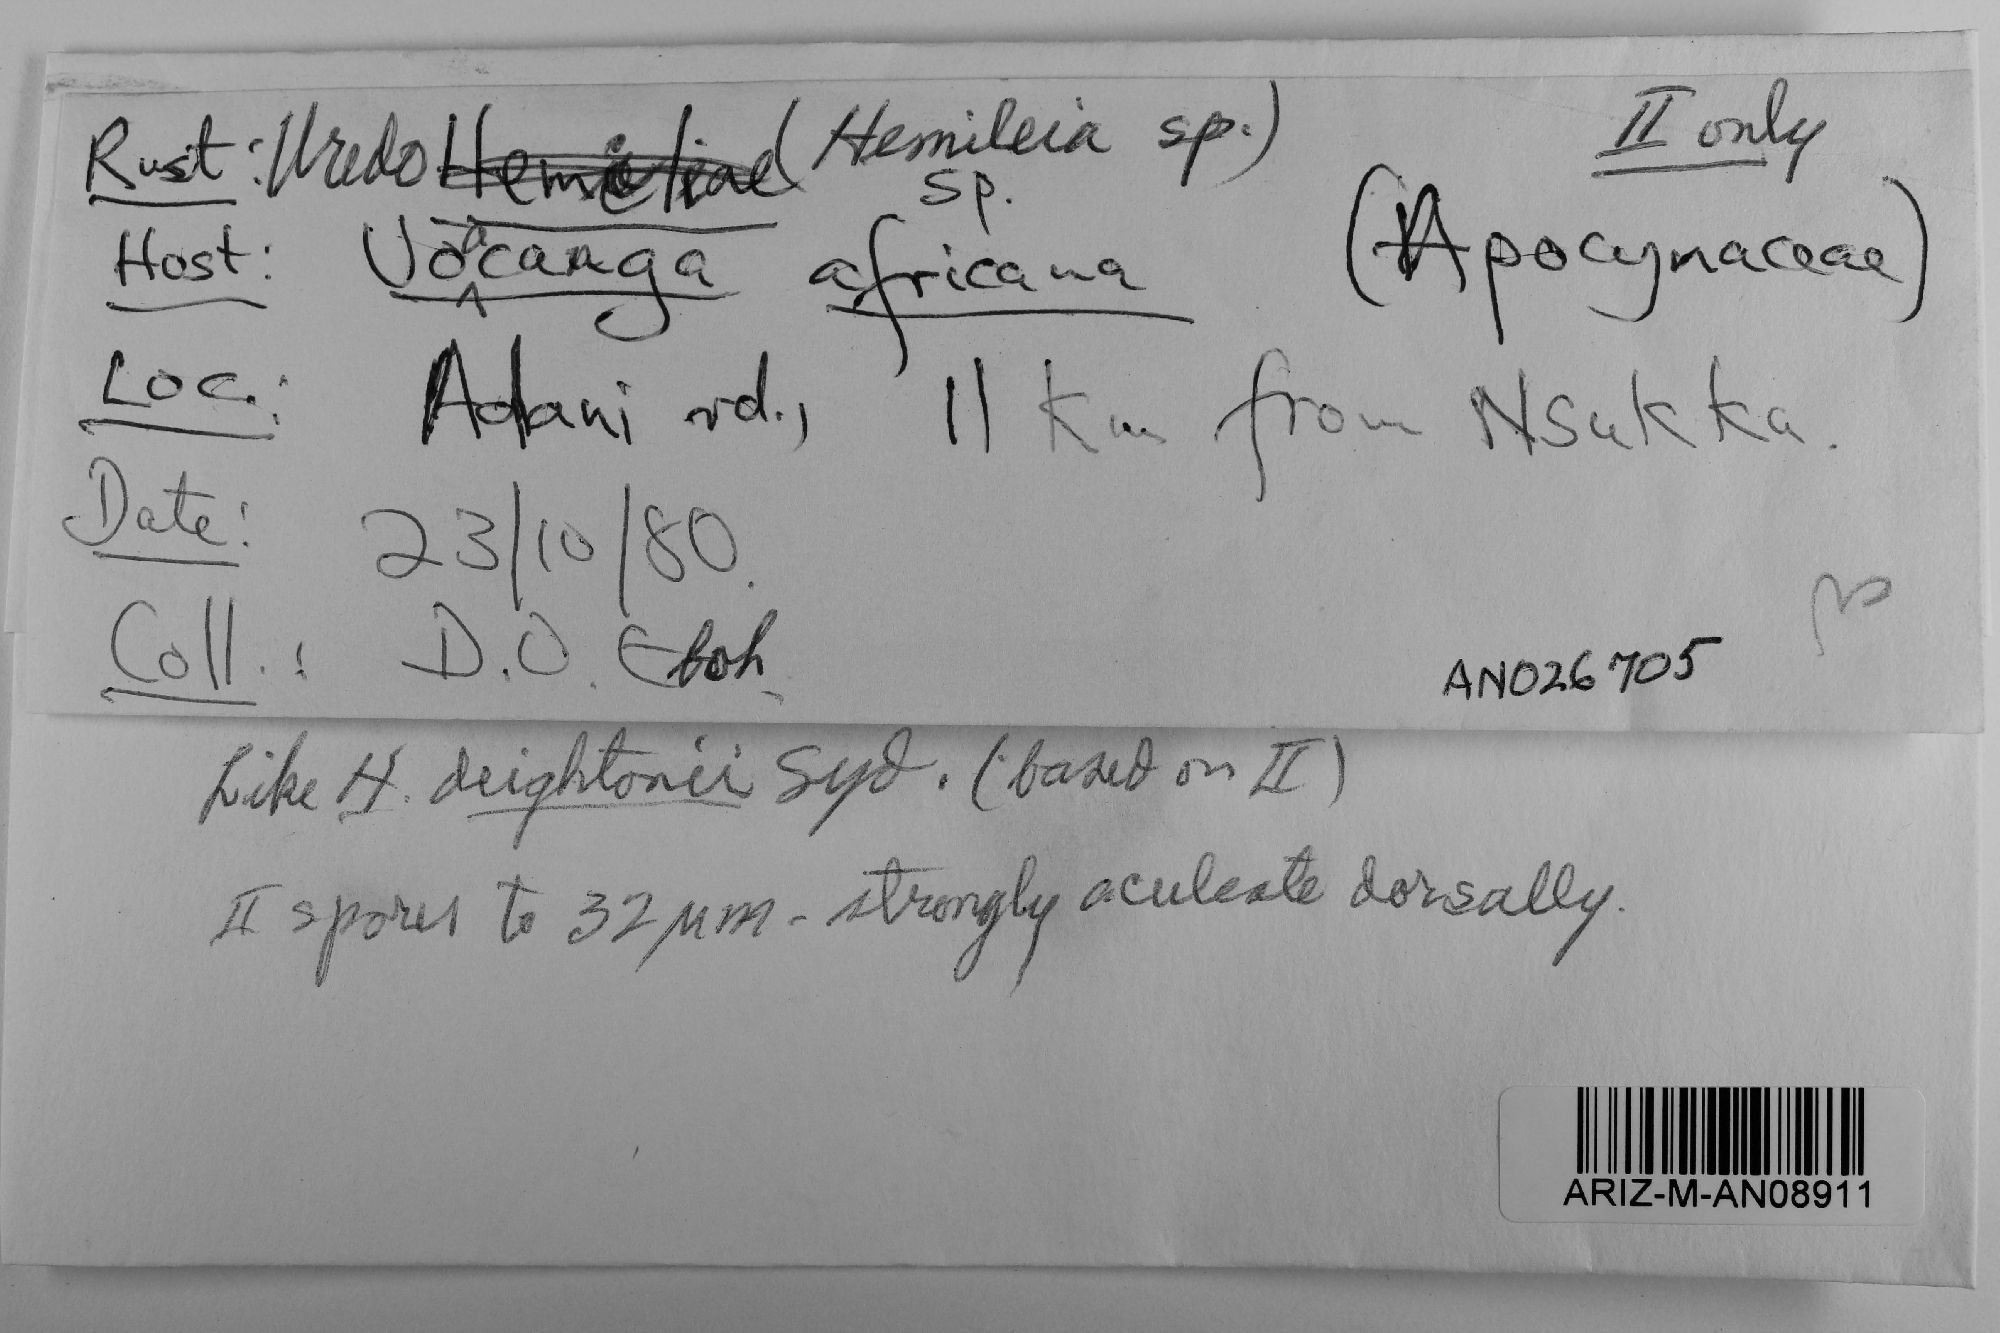 Rust: Uredo Hemileiae (Hemileia sp.) II only
sp.
Host: Voacanga africana (Apocynaceae)
Loc.: Adani rd., 11 km from Nsukka.
Date: 23/10/80.
Coll.: D.O. Eboh
AN026705
Like H. deightonii Syd. (based on II)
II spores to 32 µm - strongly aculeate dorsally.
ARIZ-M-AN08911